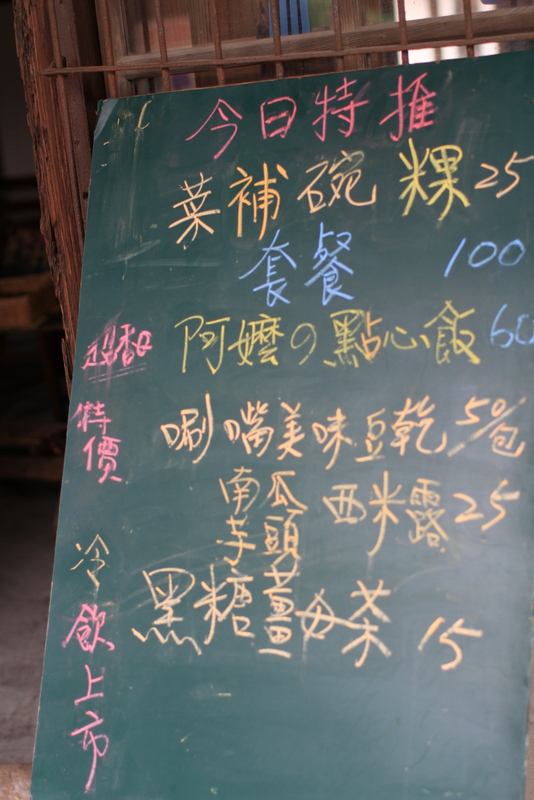 今日特推
菜補碗粿25
套餐 100
超香 阿嬤の點心飯 60
特價 唰嘴美味豆乾 50/包
南瓜
芋頭 西米露 25
黑糖薑母茶 15
冷飲上市